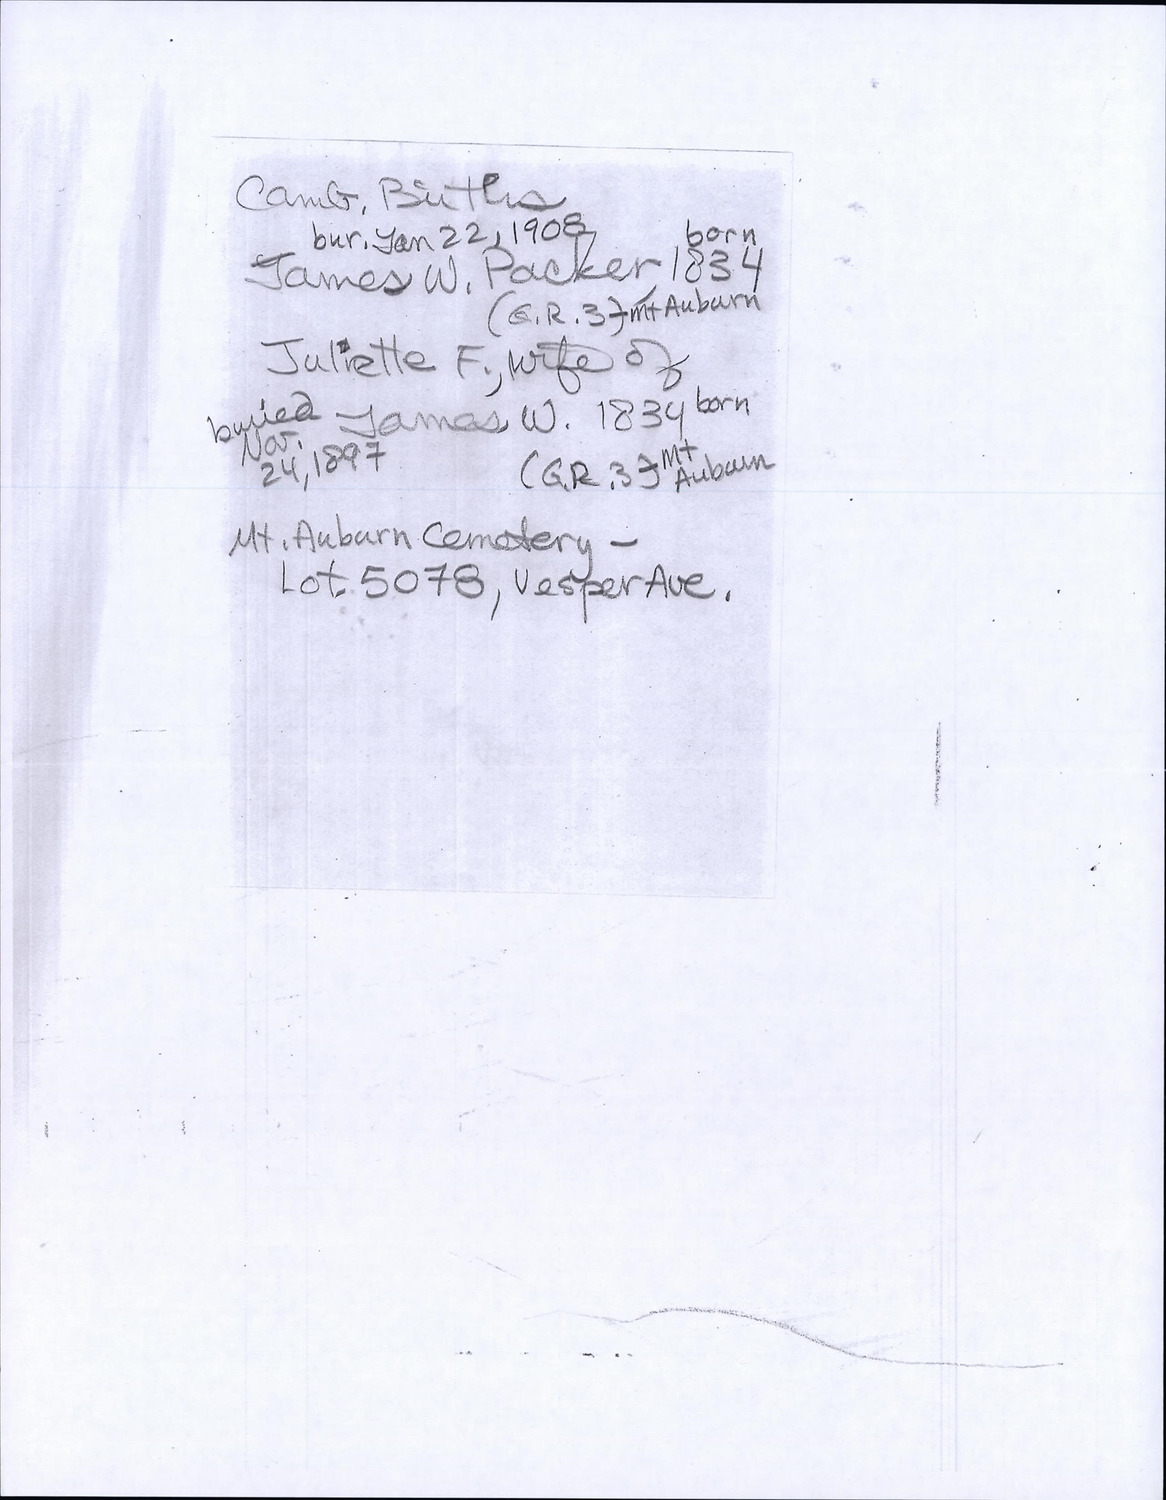 Camb. Births
bur. Jan 22, 1908 born
James W. Packer, 1834
(G.R. 3) Mt Auburn
Juliette F., wife of
buried James W. 1834 born
Nov.
24, 1897 (G.R. 3) Mt Auburn
Mt. Auburn Cemetery –
Lot. 5078, Vesper Ave.